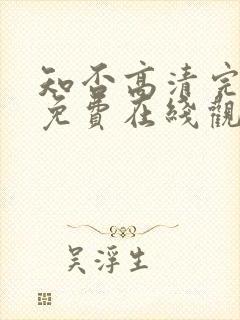 知否高清完
免費在綫觀
吴浮生